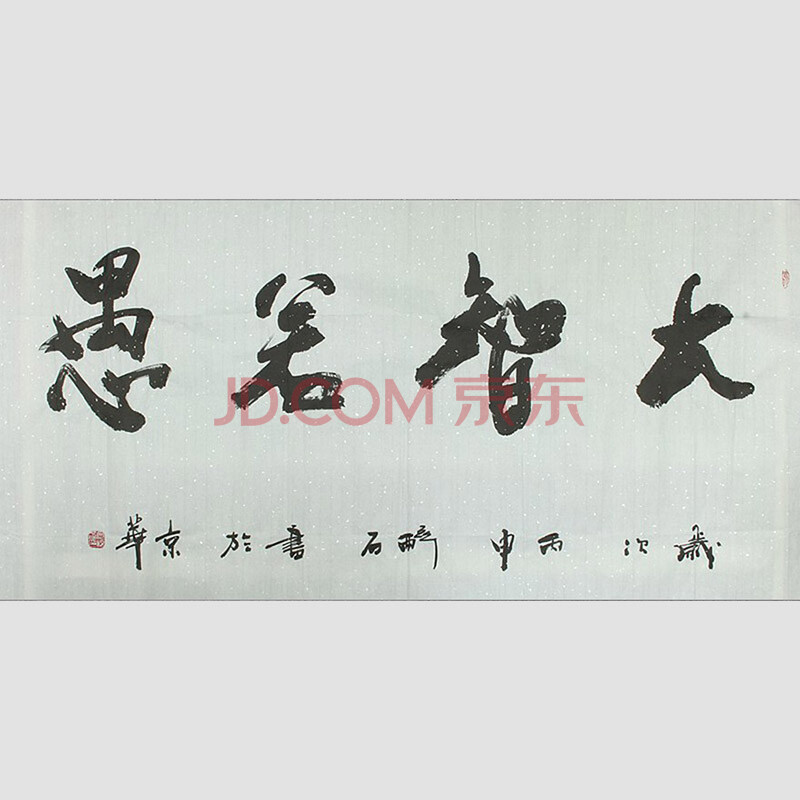 大智若愚
歲次丙申醉石書於京華
JD.COM 京东